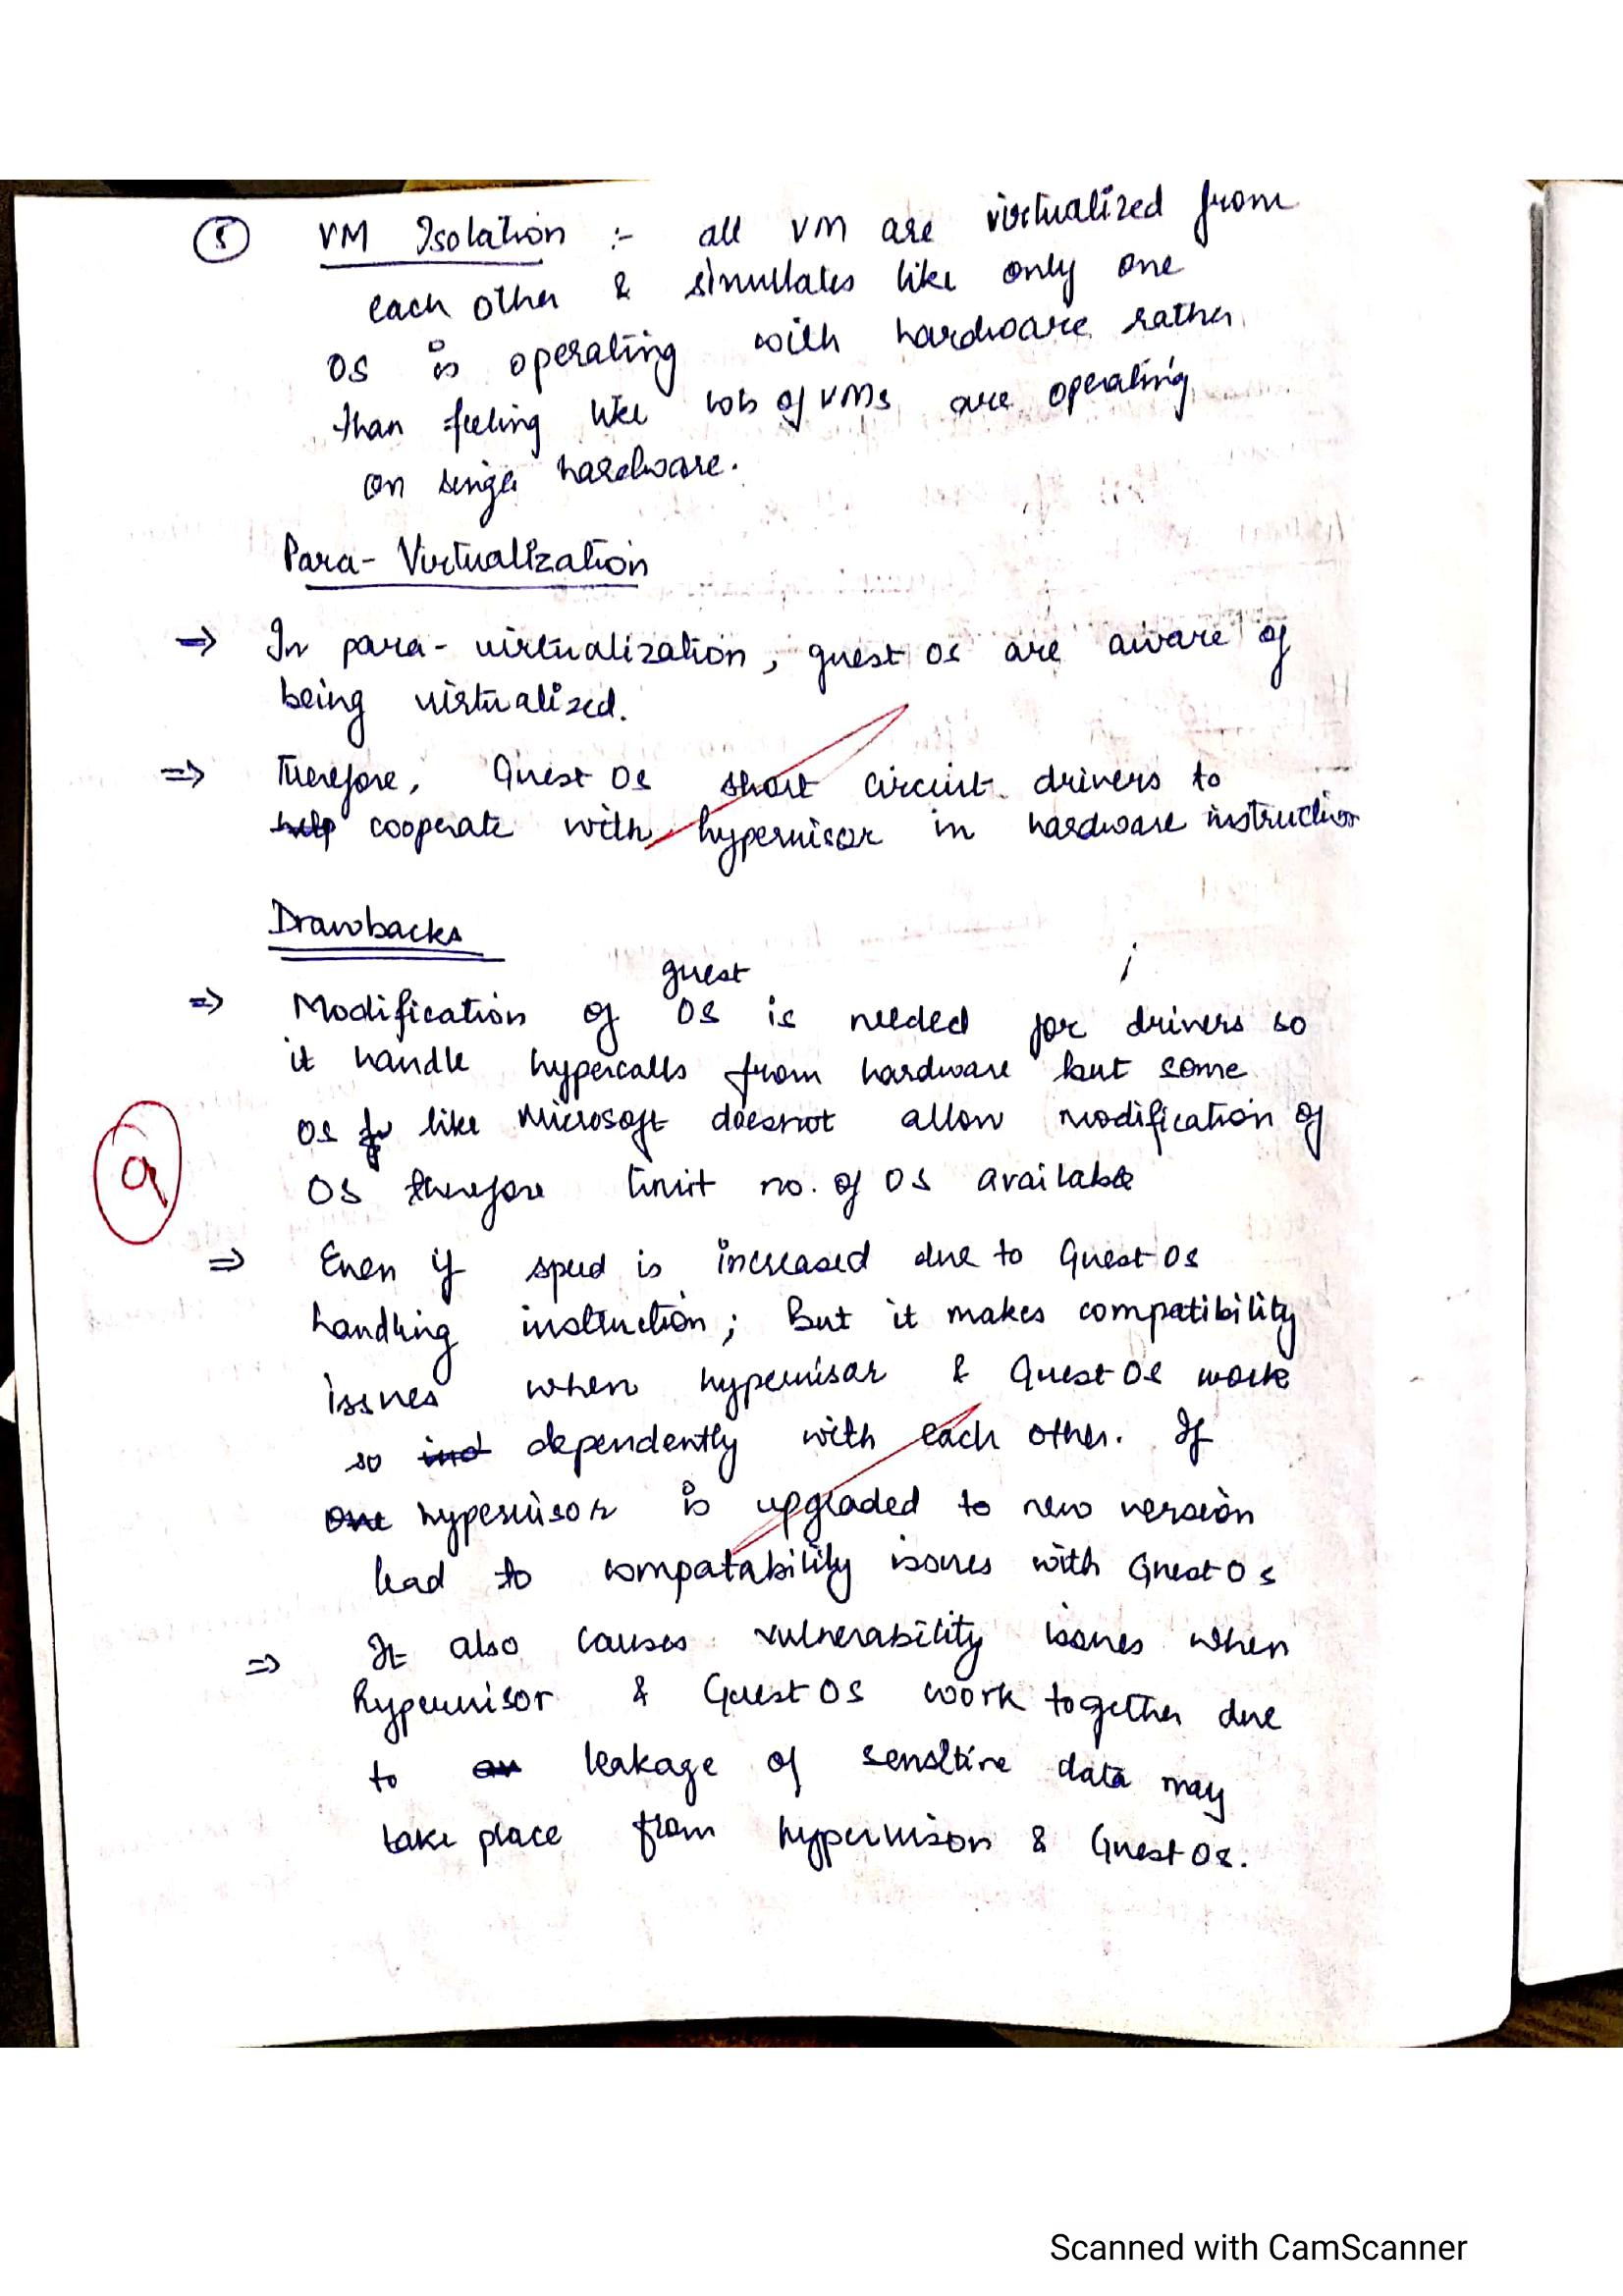 ⑤ VM Isolation :- all VM are virtualized from
each other & simullates like only one
OS is operating with hardware rather
than feeling like lots of VMs are operating
on single hardware.
Para-Virtualization
⇒ In para-virtualization, guest OS are aware of
being virtualized.
⇒ Therefore, Guest OS short circuit drivers to
help cooperate with hypervisor in hardware instruction
Drawbacks
guest
⇒ Modification of OS is needed for drivers so
it handle hypercalls from hardware but some
OS like Microsoft doesnot allow modification of
OS therefore limit no. of OS available
9
⇒ Even if speed is increased due to Guest OS
handling instruction; But it makes compatibility
issues when hypervisor & Guest OS work
so ind dependently with each other. If
one hypervisor is upgraded to new version
lead to compatability issues with Guest OS
⇒ It also causes vulnerability issues when
hypervisor & Guest OS work together due
to leakage of sensitive data may
take place from hypervisor & Guest OS.
Scanned with CamScanner